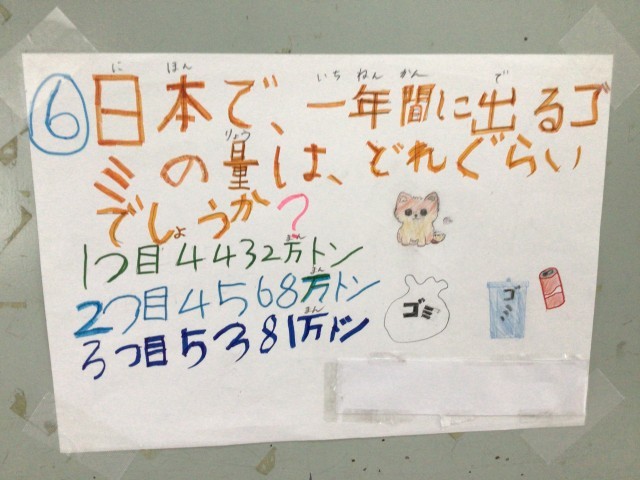 ⑥日本で、一年間に出るゴ
ミの量は、どれぐらい
でしょうか?
1つ目4432万トン
2つ目4568万トン
3つ目5381万トン
にほん いちねんかん で
りょう
まん
まん
まん
ゴミ
ゴミ